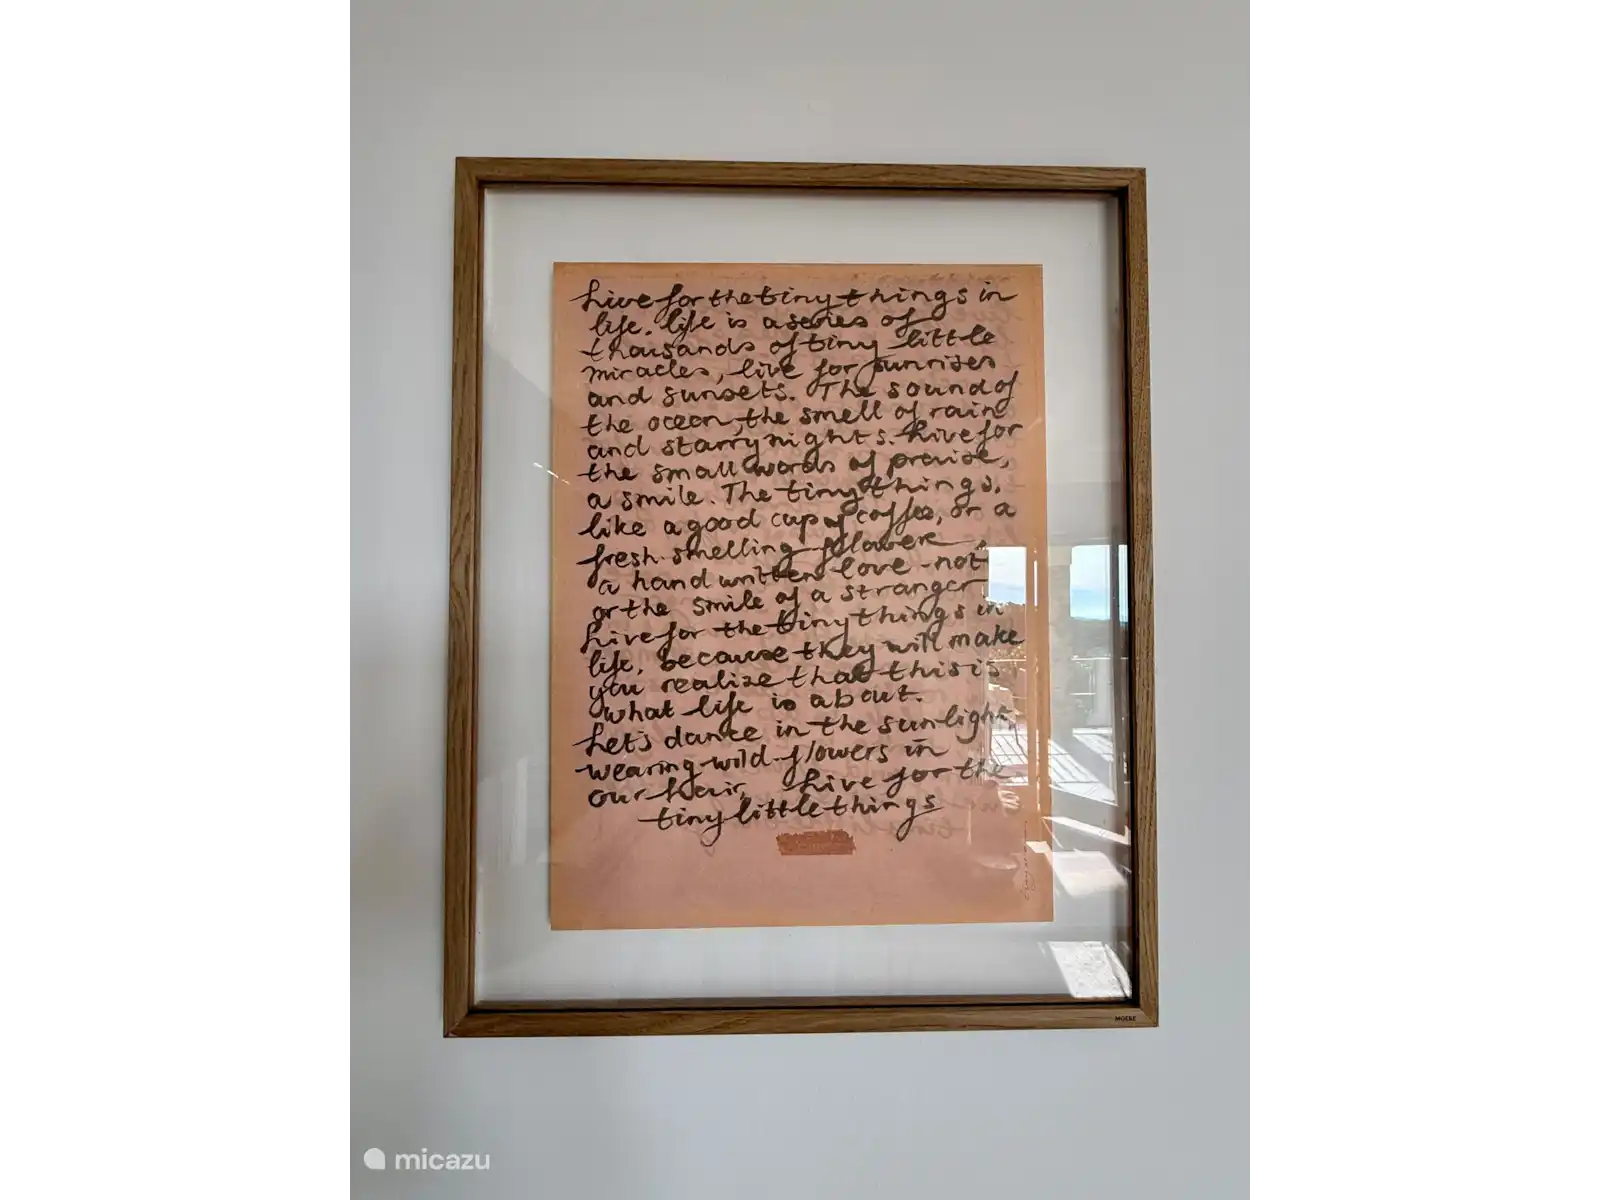 Live for the tiny things in
life. life is a series of
thousands of tiny little
miracles, live for sunrises
and sunsets. The sound of
the ocean, the smell of rain
and starry nights. Live for
the small words of praise,
a smile. The tiny things.
like a good cup of coffee, or a
fresh smelling flower
a hand written love-not
or the smile of a stranger
Live for the tiny things in
life, because they will make
you realize that this is
what life is about.
Let's dance in the sunlight,
wearing wild-flowers in
our hair, Live for the
tiny little things
MOEBE
micazu